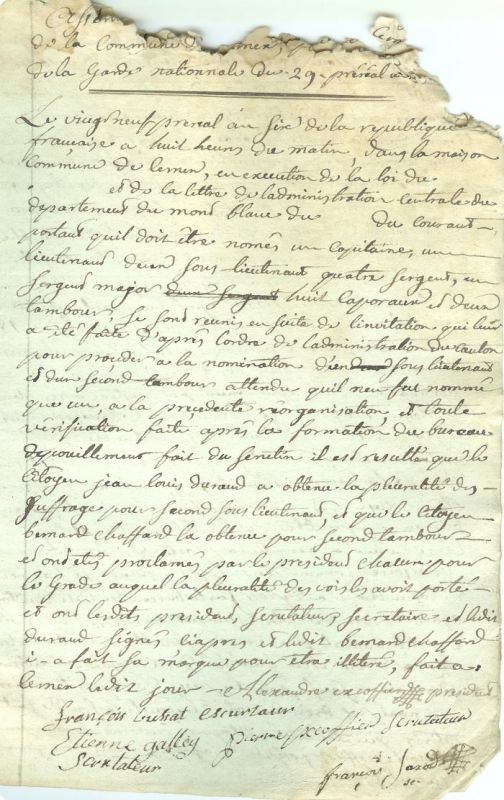 de la Commune de
de la Garde nationnale du 29 preréal
Le vingt neuf preréal an six de la republique
francaise a huit heures du matin, dans la maison
Commune de lemen, en execution de la loi du
et de la lettre de ladministration Centrale du
departement du mont blanc du du courant
portant quil doit être només un Capitaine, un
lieutenant deux sous-lieutenant quatre sergent, un
sergent major deux sergent huit Caporaux et deux
tambours, se sont reunis en suite de linvitation qui leur
a été faite d'après lordre de ladministration du canton
pour proceder a la nomination d'un sous lieutenant
et dun second tambour attendu quil neu fut nommé
que un, a la precedente reorganisation, et toute
verification faite après la formation du bureau
depouillement fait du scrutin il est resulté que le
Citoyen jean louis durand a obtenu la pluralité des
suffrage pour second sous lieutenant, et que le Citoyen
bernard Chaffard la obtenu pour second tambour
et ont étés proclamés par le president chacun pour
le Grade auquel la pluralité des voix les avoit porté
et ont lesdits president, scrutateur, secretaire et ledit
durand signés ciapres et ledit bernard chaffard
a fait sa marque pour etre illiteré, fait a
lemen ledit jour Alexandre excoffier president
françois bussat escurtaur
Etienne galley pierre excoffier scrutateur
scurtateur
françois